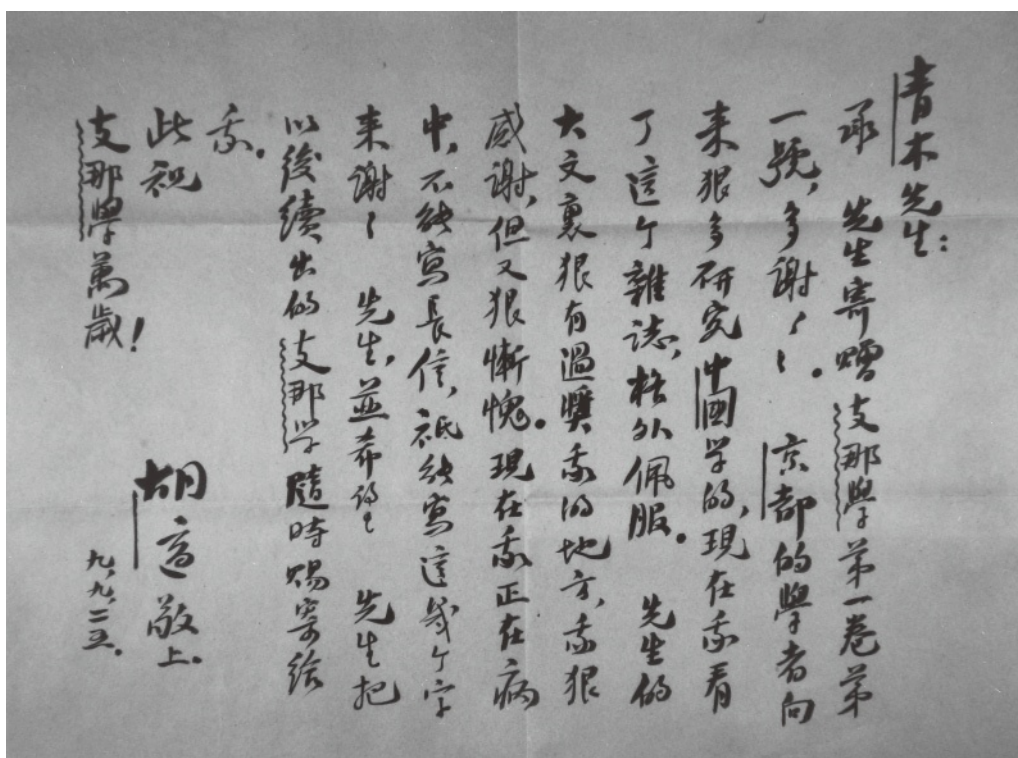 青木先生：
承　先生寄贈支那學第一卷第
一號，多謝〻〻。京都的學者向
來狠多研究中國学的，現在我看
了這个雜誌，格外佩服。　先生的
大文裏狠有過獎我的地方，我狠
感謝，但又狠慚愧。現在我正在病
中，不能寫長信，祇能寫這幾个字
来謝〻　先生，並希望　先生把
以後續出的支那学隨時賜寄給
我。
此祝
支那學萬歲！
胡適敬上。
九，九，二五。